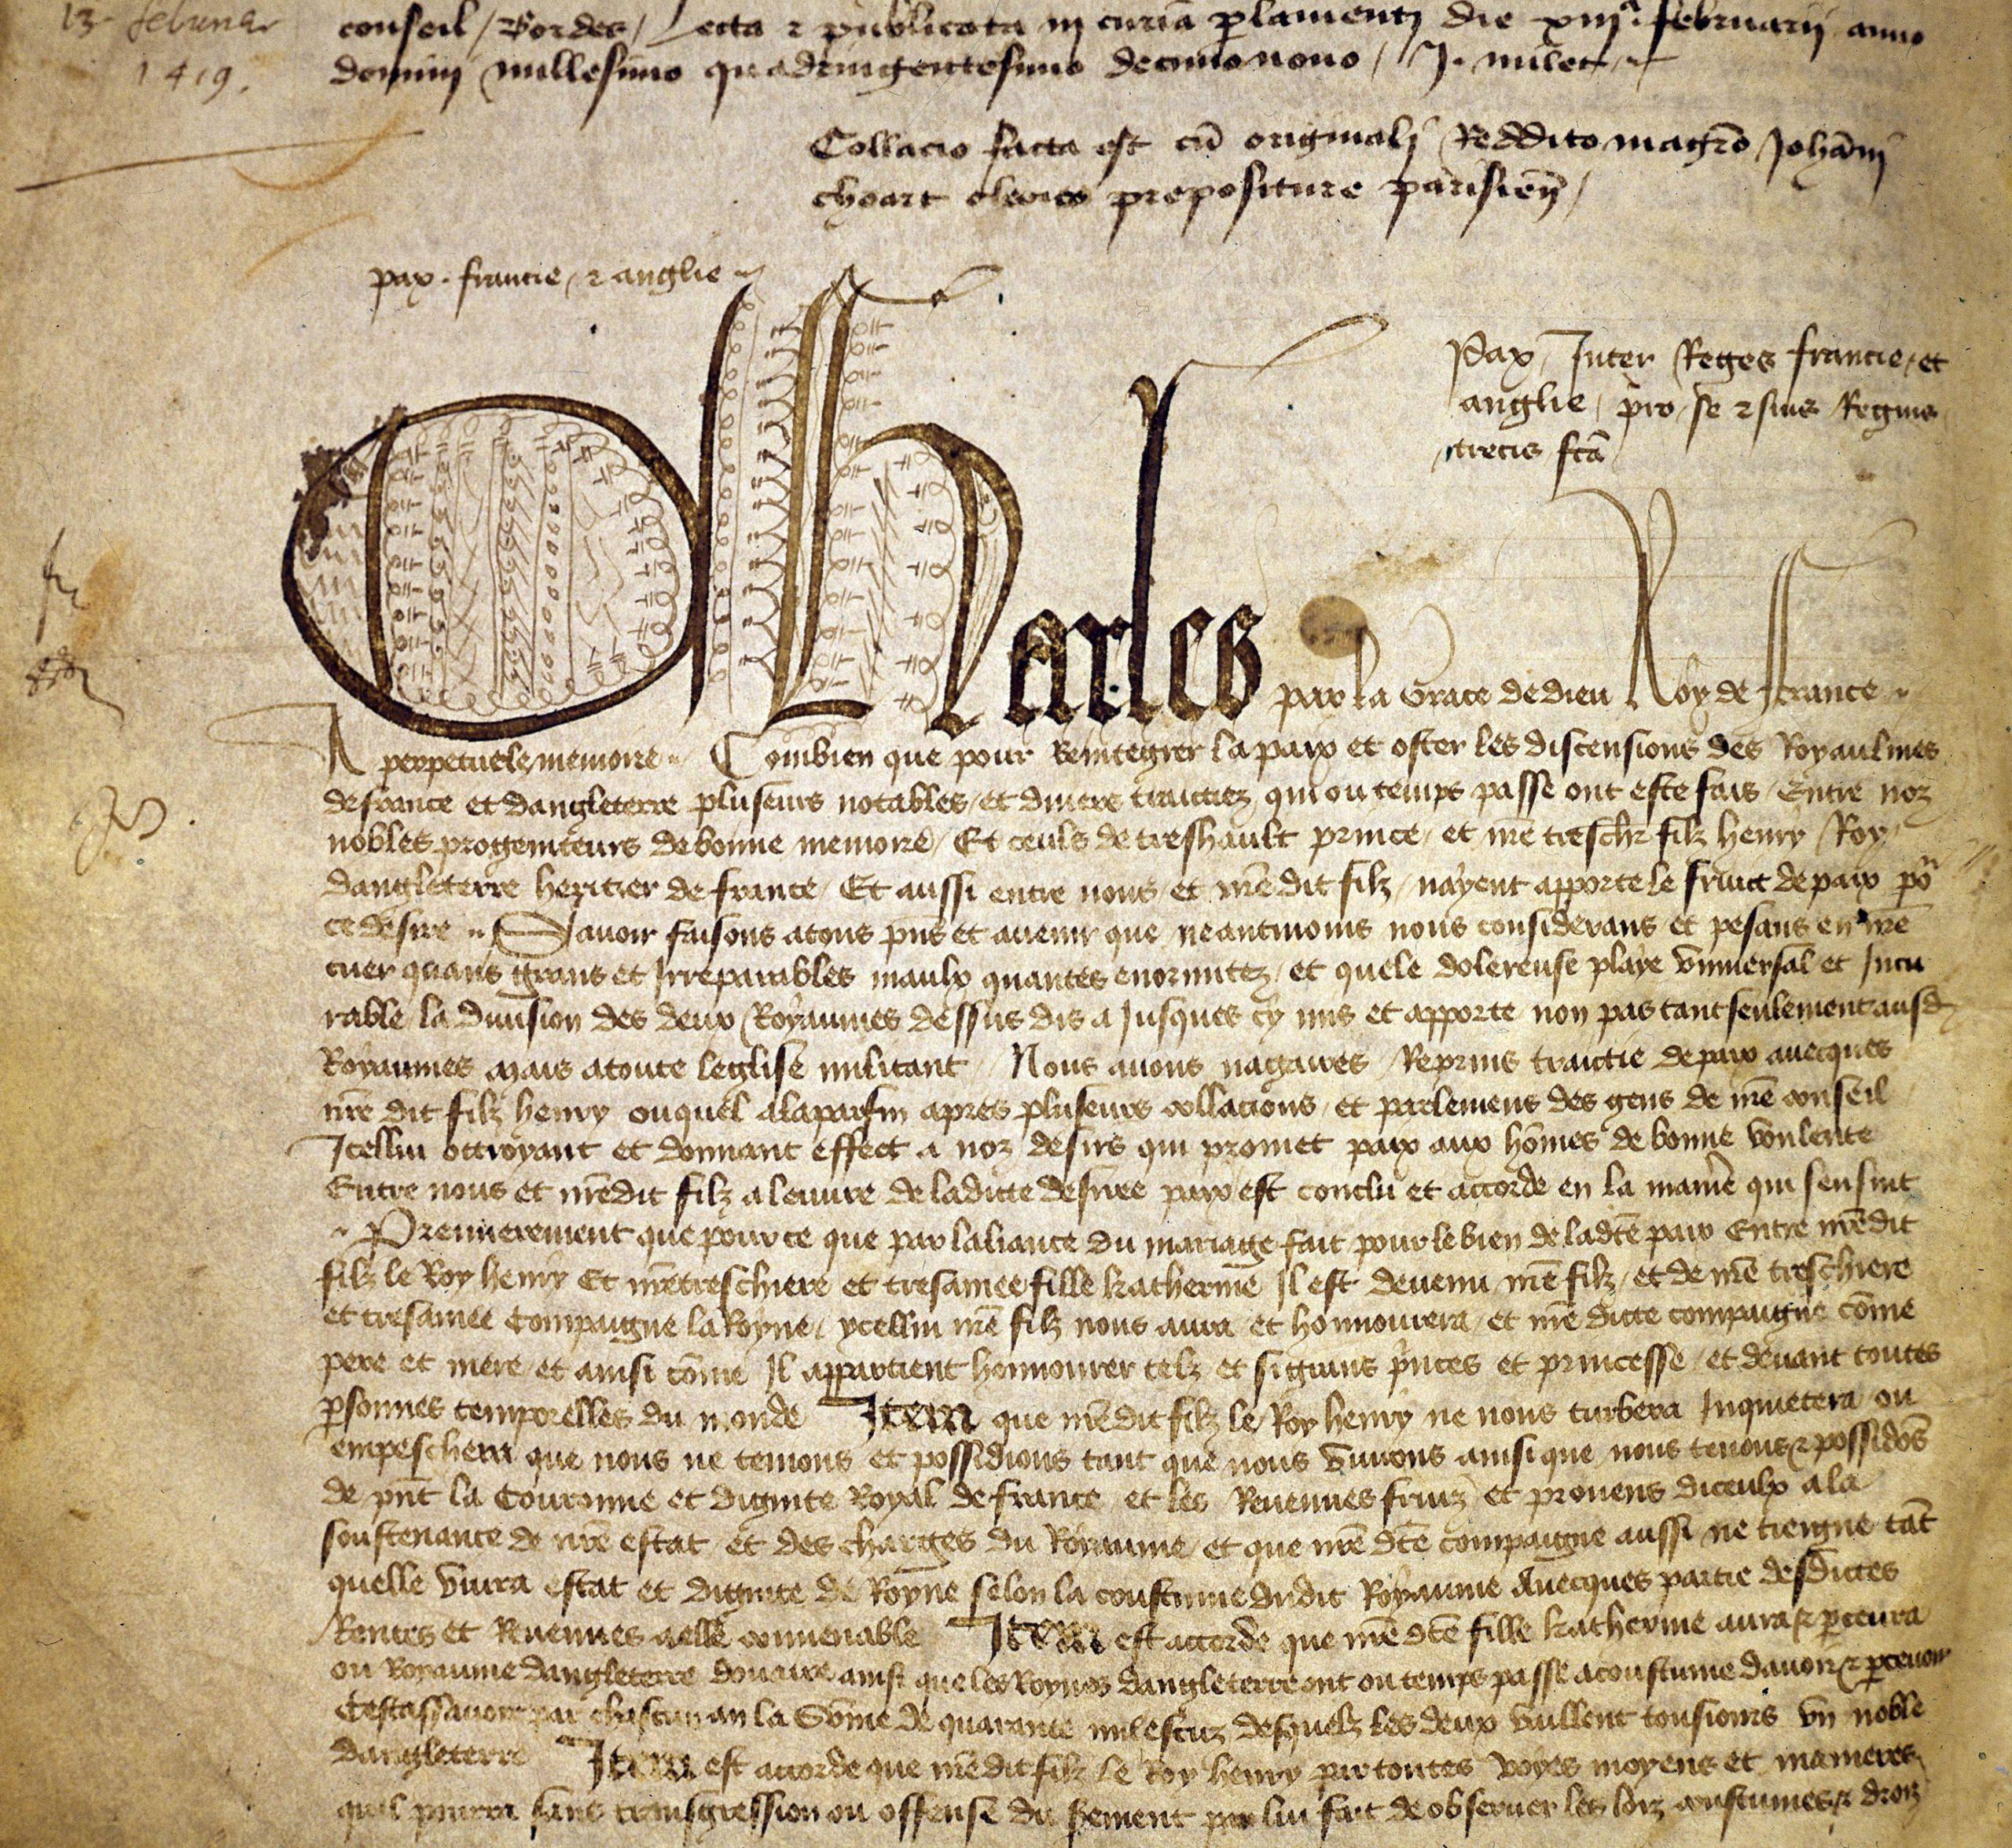 13 februar
1419.
conseil / Bordes / Lecta ⁊ publicata in curia plamenti die xiiiª. februarii anno
domini millesimo quadringentesimo decimonono / J. milet
Collacio facta est cū originali Reddito magrō Johāni
choart clerico prepositure parisieñ /
pax. francie / ⁊ anglie
Pax Inter Reges francie et
anglie / pro se ⁊ suis Regnis
trecis fcā
Charles par la Grace de dieu Roy de France
A perpetuele memoire Combien que pour Reintegrer la paix et oster les discensions des Royaulmes
de france et dangleterre pluseurs notables et divers traictiez qui ou temps passe ont este fais Entre noz
nobles progeniteurs de bonne memoire Et ceuls de treshault prince et nrē treschr filz henry Roy
dangleterre heritier de france Et aussi entre nous et nrē dit filz nayent apporte le fruict de paix pō
ce desire Savoir faisons a tous pn̄s et avenir que neantmoins nous considerans et pesans en nrē
cuer quans grans et Irreparables maulx quantes enormitez et quele dolereuse playe universal et Incu
rable la division des deux Royaumes dessus dis a Jusques cy mis et apporte non pas tant seulement ausd
Royaumes mais a toute leglise militant Nous avons nagaires Reprins traictie de paix avecques
nrē dit filz henry ouquel a la parfin apres pluseurs collacions et parlemens des gens de nrē conseil
Icellui ottroyant et donnant effect a noz desirs qui promet paix aux hōmes de bonne voulente
Entre nous et nrē dit filz a leuure de ladicte desiree paix est conclu et accorde en la manie͂ qui sensuit
Premierement que pour ce que par laliance du mariage fait pour le bien de ladtē paix Entre nrē dit
filz le Roy henry Et nrē treschiere et tresamee fille katherine Il est devenu nrē filz et de nrē treschiere
et tresamee Compaigne la Royne ycellui nrē filz nous aura et honnourera et nrē dicte compaigne cōme
pere et mere et ainsi cōme Il appartient honnourer telz et si grans pnces et princesse et devant toutes
psonnes temporelles du monde Item que nrē dit filz le Roy henry ne nous turbera Inquietera ou
empeschera que nous ne tenions et possidions tant que nous vivrons ainsi que nous tenons ⁊ possidōs
de pn̄t la Couronne et dignite Royal de france et les Revenues fruiz et prouens diceulx a la
soustenance de nrē estat et des charges du Royaume et que nrē dtē compaigne aussi ne tiengne tāt
quelle vivra estat et dignite de Royne selon la coustume dudit Royaume Avecques partie desdictes
Rentes et Revenues a elle convenable Item est accorde que nrē dtē fille katherine aura ⁊ pcevra
ou Royaume dangleterre douaire ainsi que les Roynes dangleterre ont ou temps passe acoustume davoir ⁊ pcevoir
Cestassavoir par chascun an la Sōme de quarante mil escuz desquelz les deux vaillent tousiours vn noble
dangleterre Item est accorde que nrē dit filz le Roy henry par toutes voyes moyens et manieres
quil pourra sans transgression ou offense du serement par lui fait de observer les loiz coustumes ⁊ droiz